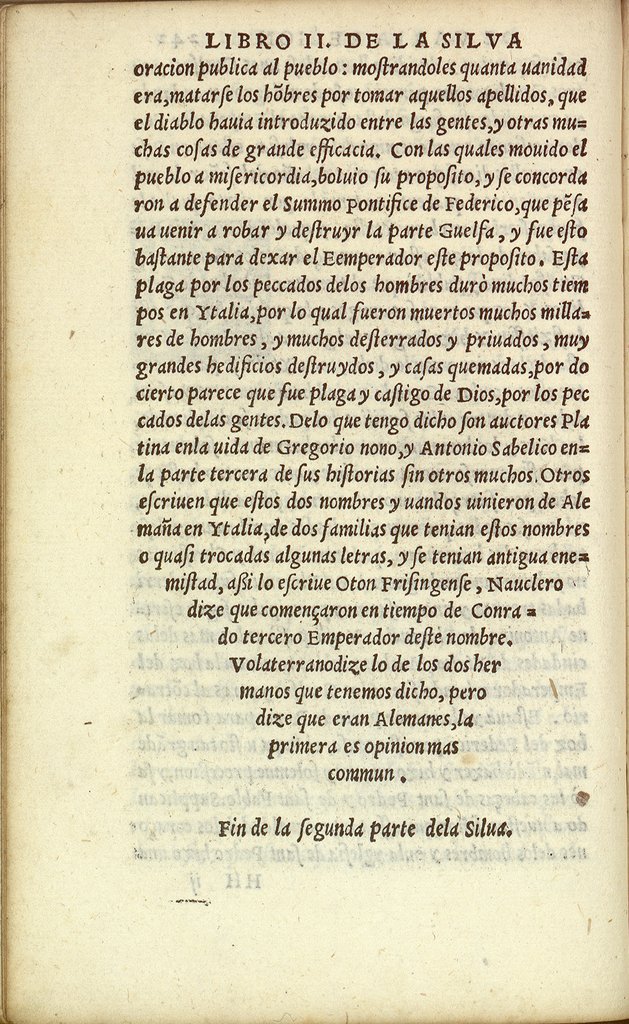 LIBRO II. DE LA SILVA
oracion publica al pueblo : moſtrandoles quanta uanidad
era, matarſe los hõbres por tomar aquellos apellidos, que
el diablo hauia introduzido entre las gentes, y otras mu=
chas coſas de grande efficacia. Con las quales mouido el
pueblo a miſericordia, boluio ſu propoſito, y ſe concorda
ron a defender el Summo Pontifice de Federico, que pẽſa
ua uenir a robar y deſtruyr la parte Guelfa, y fue eſto
baſtante para dexar el Eemperador eſte propoſito. Eſta
plaga por los peccados delos hombres durò muchos tiem
pos en Ytalia, por lo qual fueron muertos muchos milla=
res de hombres, y muchos deſterrados y priuados, muy
grandes hedificios deſtruydos, y caſas quemadas, por do
cierto parece que fue plaga y caſtigo de Dios, por los pec
cados delas gentes. Delo que tengo dicho ſon auctores Pla
tina enla uida de Gregorio nono, y Antonio Sabelico en=
la parte tercera de ſus hiſtorias ſin otros muchos. Otros
eſcriuen que eſtos dos nombres y uandos uinieron de Ale
maña en Ytalia, de dos familias que tenian eſtos nombres
o quaſi trocadas algunas letras, y ſe tenian antigua ene=
miſtad, aßi lo eſcriue Oton Friſingenſe, Nauclero
dize que començaron en tiempo de Conra=
do tercero Emperador deſte nombre.
Volaterranodize lo de los dos her
manos que tenemos dicho, pero
dize que eran Alemanes, la
primera es opinion mas
commun.
Fin de la ſegunda parte dela Silua.